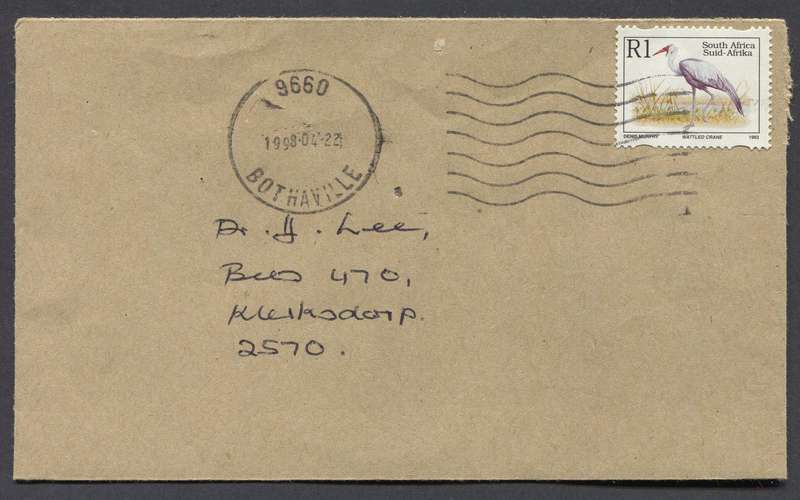 9660
1998-04-22
BOTHAVILLE
R1
South Africa
Suid-Afrika
DENIS MURPHY WATTLED CRANE 1993
Dr. H. Lee,
Bus 470,
Klerksdorp.
2570.